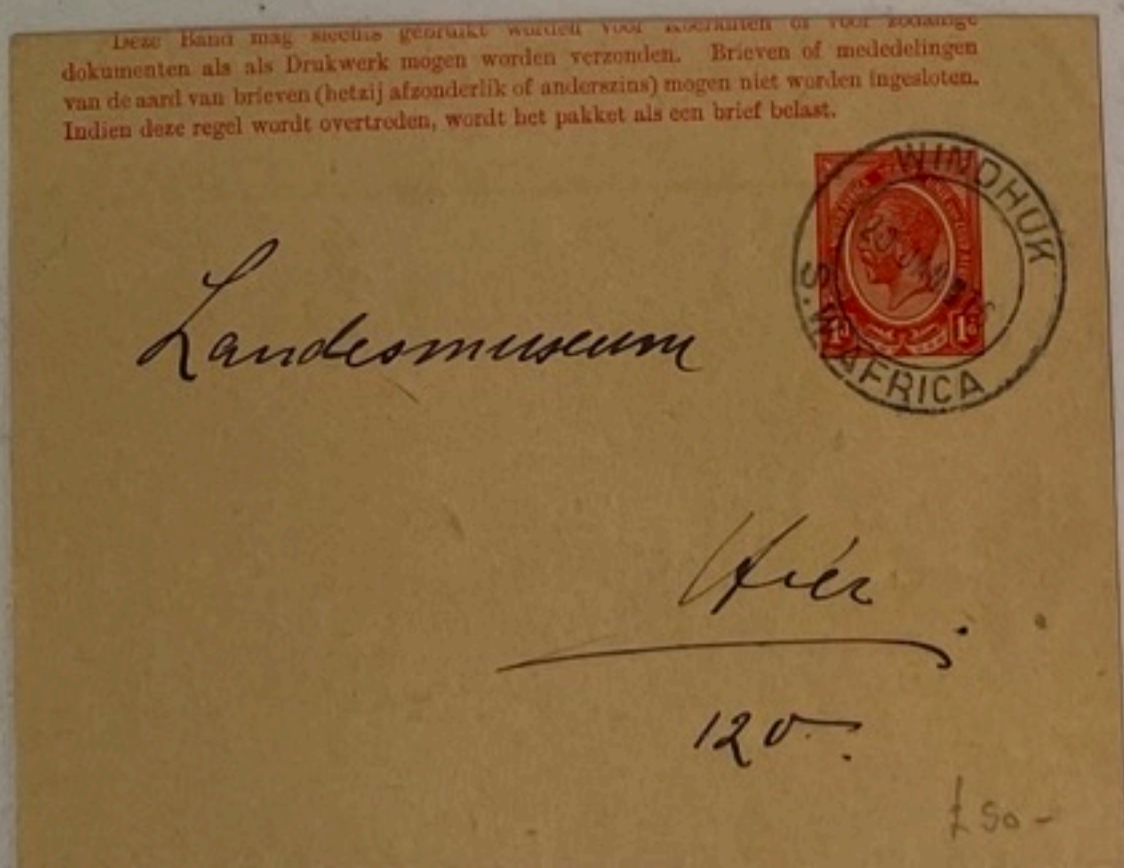 Deze Band mag slechts gebruikt worden voor Koeranten of voor zodanige
dokumenten als als Drukwerk mogen worden verzonden. Brieven of mededelingen
van de aard van brieven (hetzij afzonderlik of anderszins) mogen niet worden ingesloten.
Indien deze regel wordt overtreden, wordt het pakket als een brief belast.
WINDHUK
S.W. AFRICA
1d 1d
Landesmuseum
Hier
120.
£50-